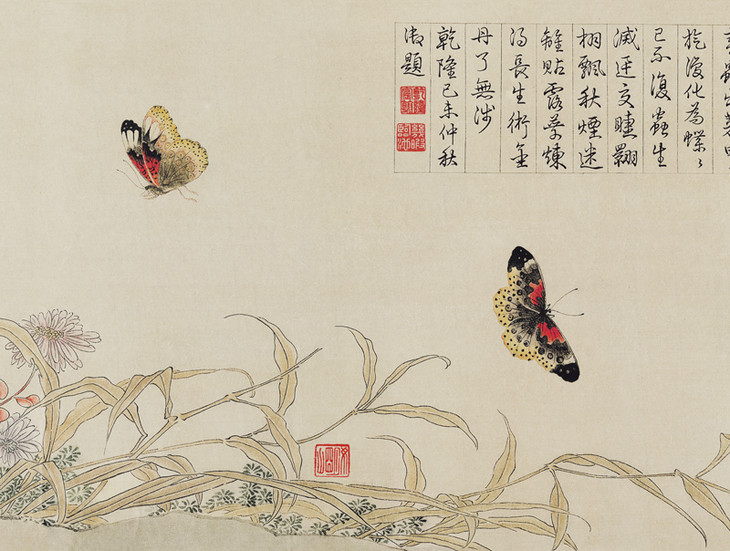 旋復化為蝶〻
已不復蟲生
滅迅交睫翾
栩飄秋煙迷
離貼露葉煉
得長生術金
丹了無涉
乾隆己未仲秋
御題